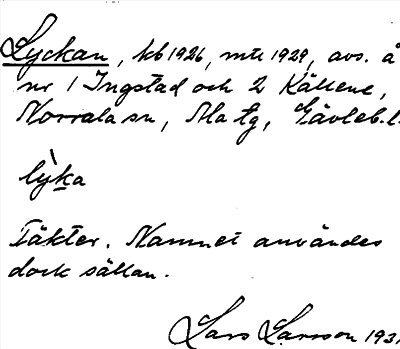 Lyckan, kb 1926, mtl 1929, avs. å
nr 1 Ingstad och 2 Källene,
Norrala sn, Ala tg, Gävleb. l.
lỳka
Täkter. Namnet användes
dock sällan.
Lars Larsson 193